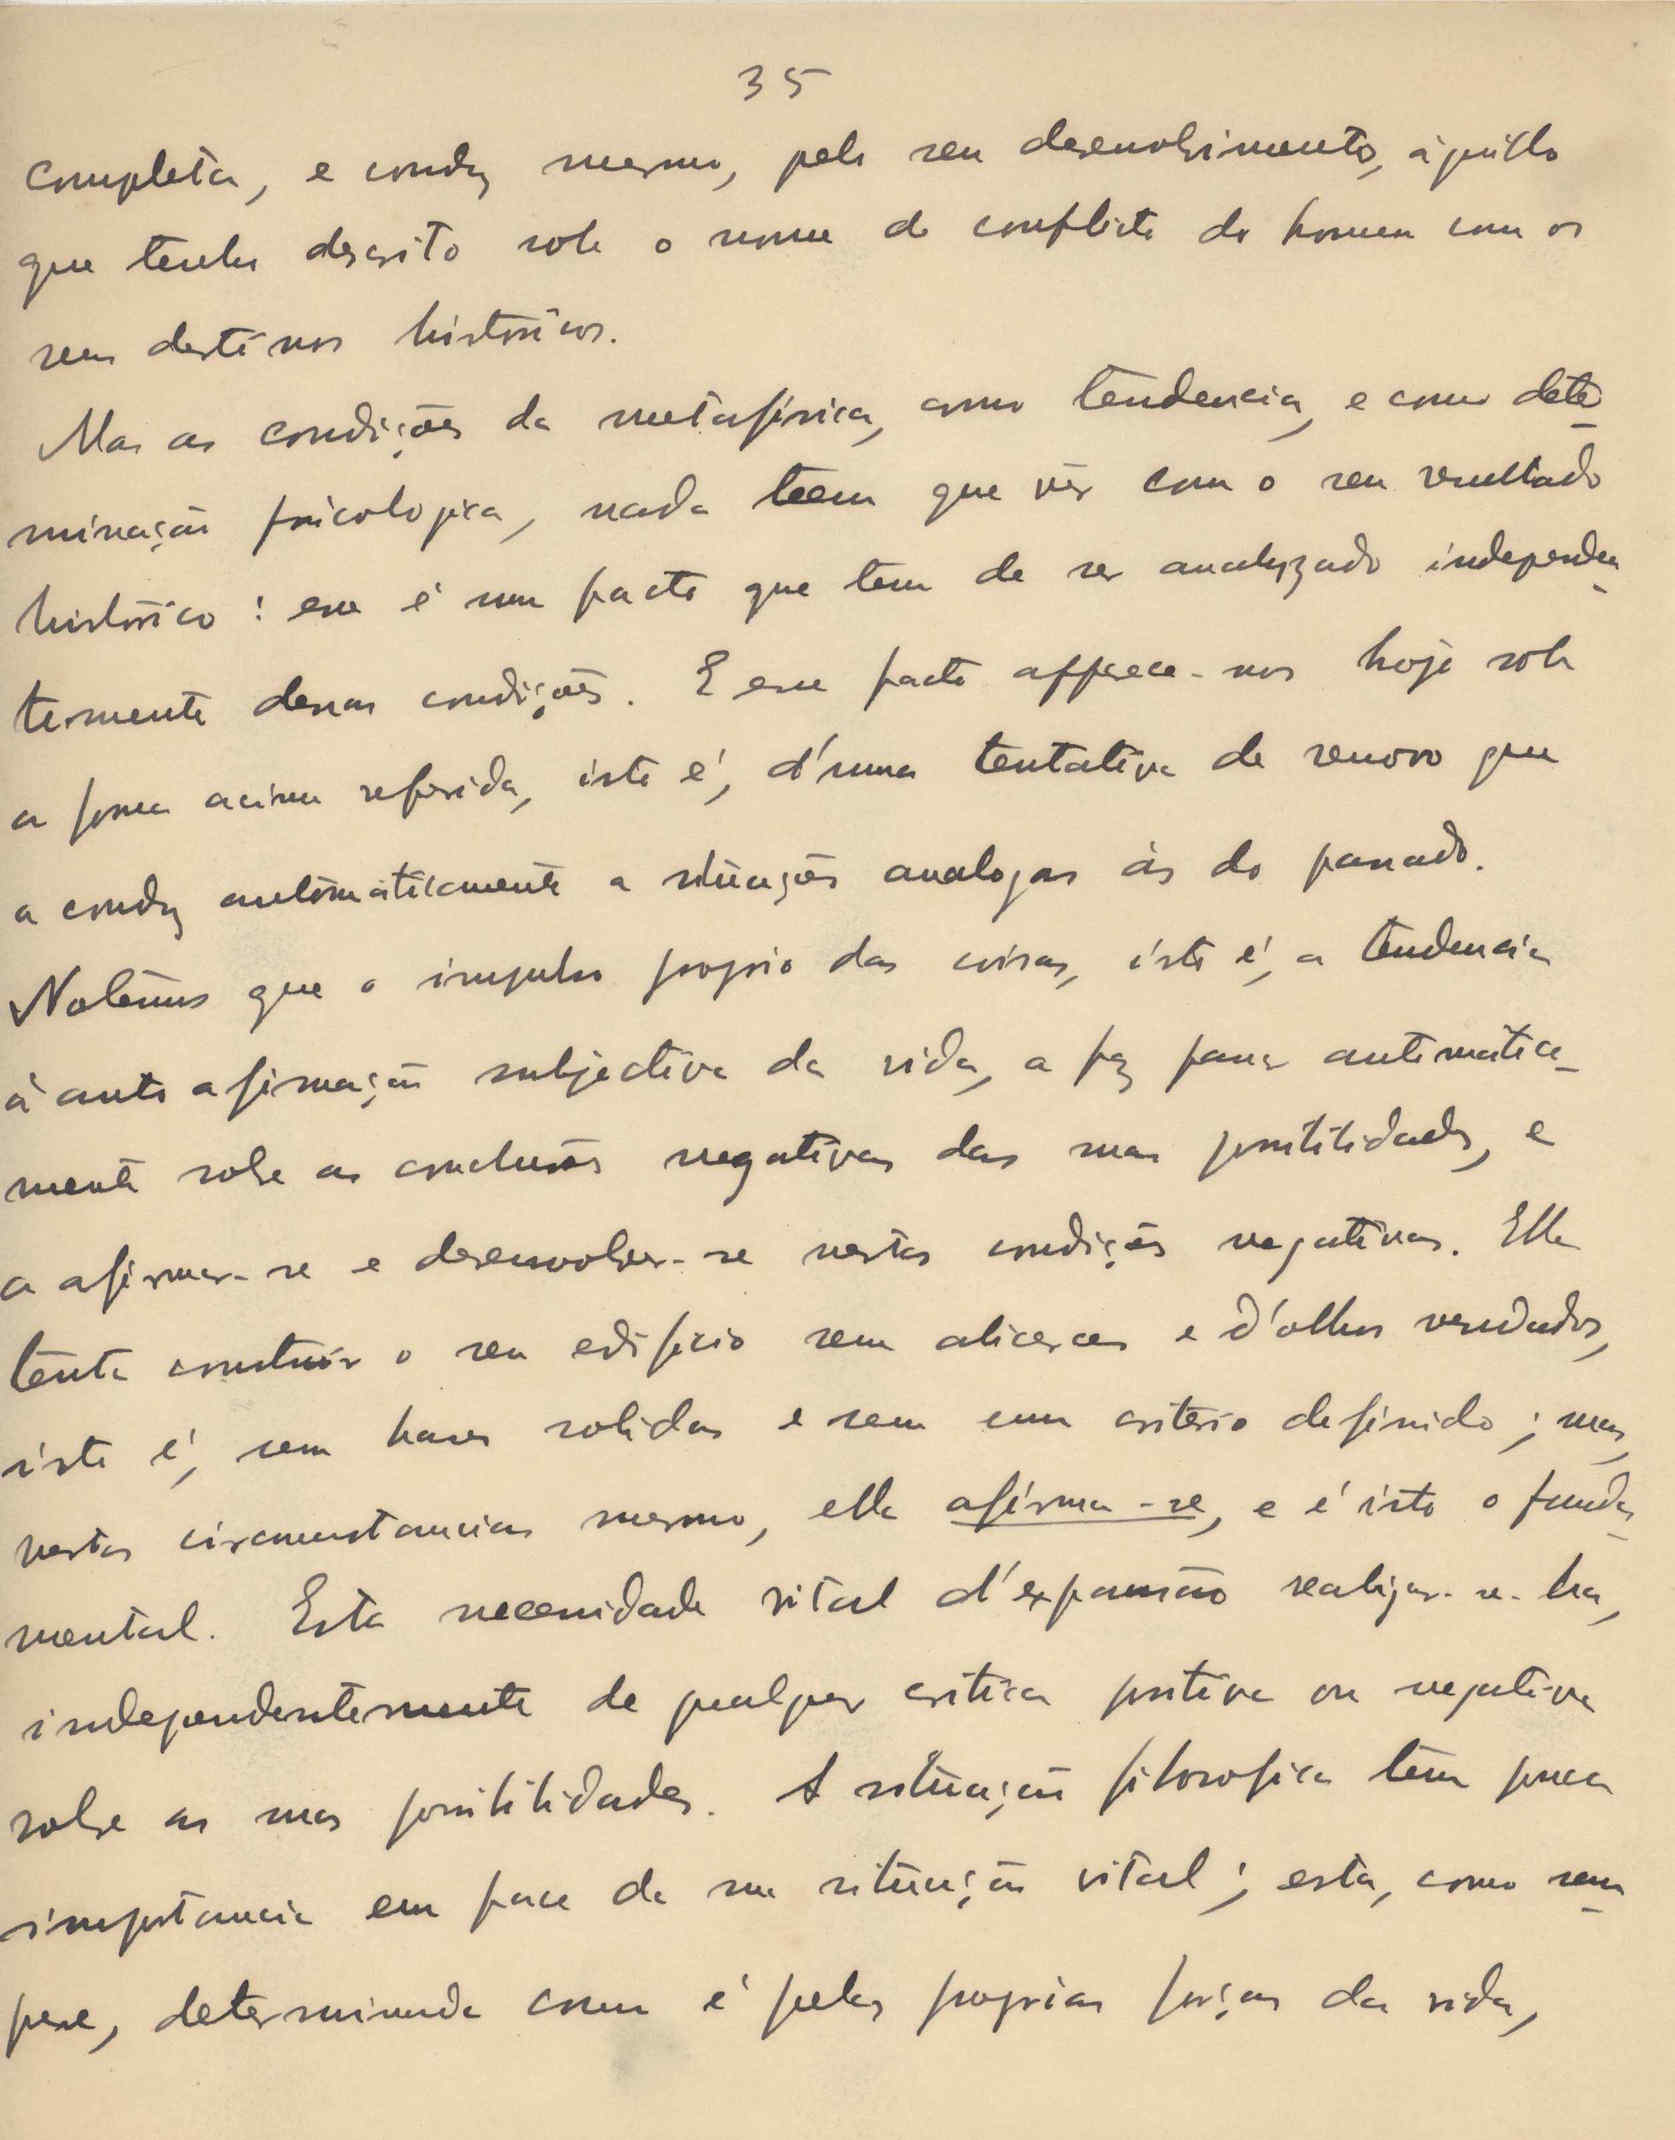 35
completa, e conduz mesmo, pelo seu desenvolvimento, àquillo
que tenho descrito sob o nome do conflicto do homem com os
seus destinos historicos.
Mas as condições da metafisica, como tendencia, e como deter-
minação psicologica, nada teem que vêr com o seu resultado
histórico: esse é um facto que tem de ser analyzado independen-
temente dessas condições. E esse facto apparece-nos hoje sob
a forma acima referida, isto é, d'uma tentativa de renovo que
a conduz automáticamente a situações analogas ás do passado.
Notêmos que o impulso proprio das coisas, isto é, a tendencia
à auto afirmação subjectiva da vida, a faz passar automática-
mente sobre as conclusões negativas das suas possibilidades, e
a afirmar-se e desenvolver-se nestas condições negativas. Ella
tenta construir o seu edificio sem alicerces e d'olhos vendados,
isto é, sem bases solidas e sem um critério definido; mas,
nestas circumstancias mesmo, ella afirma-se, e é isto o funda-
mental. Esta necessidade vital d'expansão realizar-se-ha,
independentemente de qualquer critica positiva ou negativa
sobre as suas possibilidades. A situação filosofica tem pouca
importancia em face da sua situação vital; esta, como sem-
pre, determinada como é pelas proprias forças da vida,